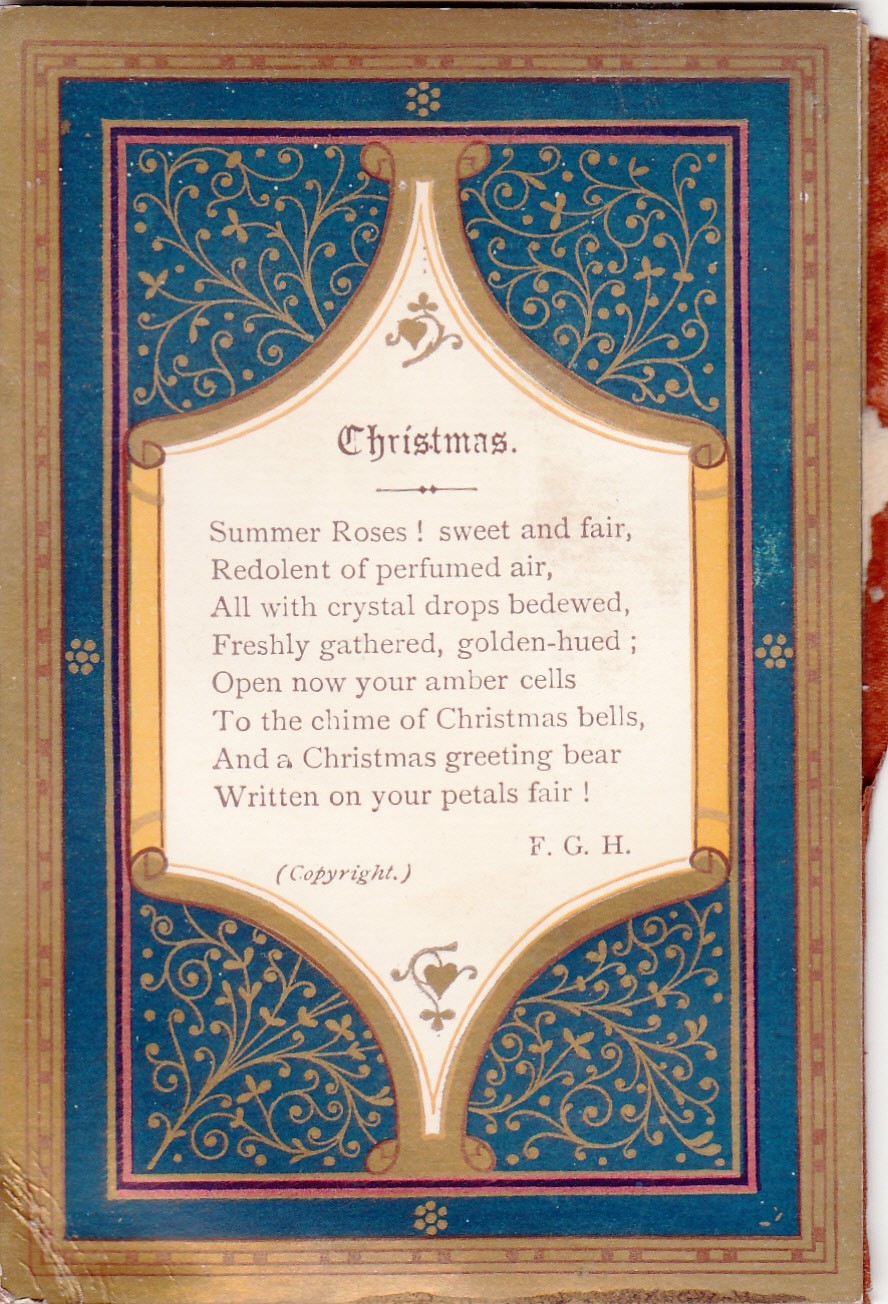 Christmas.
Summer Roses ! sweet and fair,
Redolent of perfumed air,
All with crystal drops bedewed,
Freshly gathered, golden-hued ;
Open now your amber cells
To the chime of Christmas bells,
And a Christmas greeting bear
Written on your petals fair !
F. G. H.
(Copyright.)